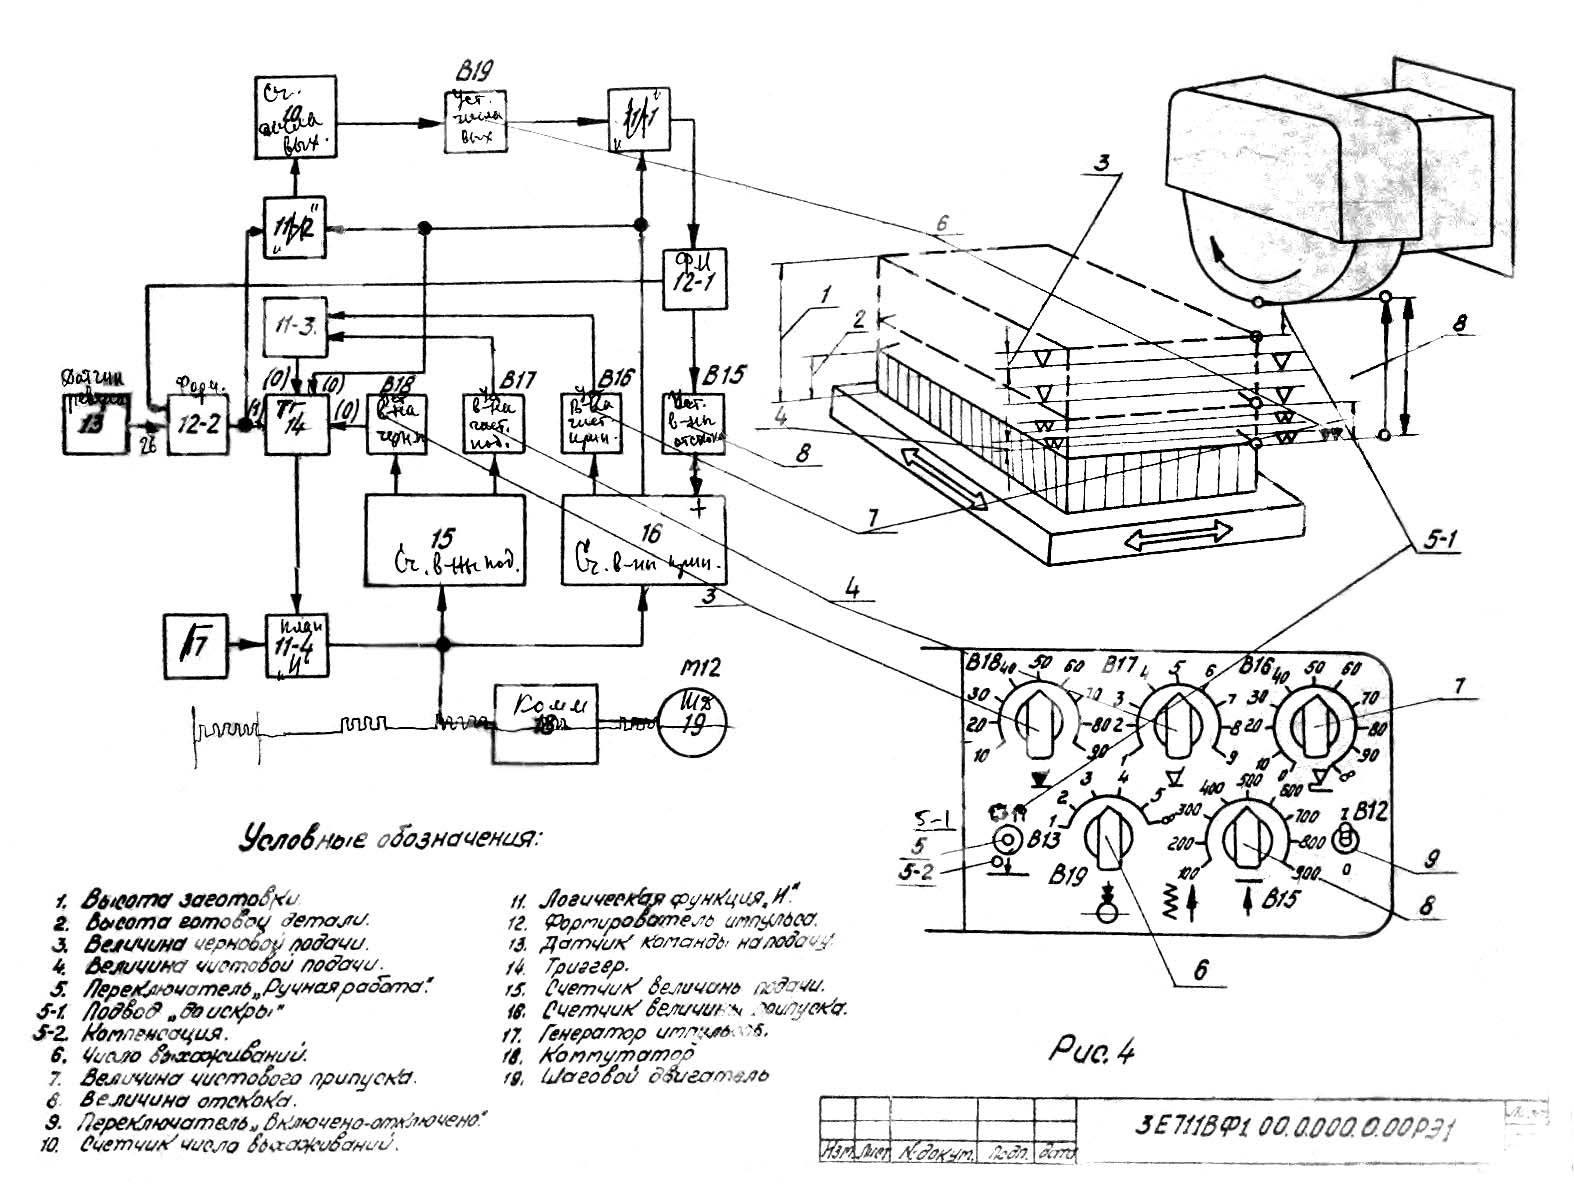 В19
Сч.
10
числа
вых.
Уст.
числа
вых
"11-1"
"11-2"
ФИ
12-1
11-3.
Датчик
реверса
13
26
Форм.
12-2
(1)
(0)
(0)
(0)
Тг
14
В18
Уст
в-на
черн.
В17
Уст
в-на
чист.
под.
В16
В-на
чист.
прип.
В15
Уст.
в-ны
отскока
15
Сч. в-ны под.
+
16
Сч. в-ны прип.
17
Клап
11-4
"И"
Комм
18
М12
ШД
19
1
2
3
4
6
7
8
8
5-1
3
4
В18 10 20 30 40 50 60 70 80 90
В17 1 2 3 4 5 6 7 8 9
В16 0 10 20 30 40 50 60 70 80 90 ∞
7
5-1
5
5-2
В13
В19 1 2 3 4 5 ∞
В15 100 200 300 400 500 600 700 800 900
В12
0
9
8
6
Условные обозначения:
1. Высота заготовки.
2. Высота готовой детали.
3. Величина черновой подачи.
4. Величина чистовой подачи.
5. Переключатель „Ручная работа".
5-1. Подвод „до искры"
5-2. Компенсация.
6. Число выхаживаний.
7. Величина чистового припуска.
8. Величина отскока.
9. Переключатель „Включено-отключено."
10. Счетчик числа выхаживаний.
11. Логическая функция „И".
12. Формирователь импульса.
13. Датчик команды на подачу
14. Триггер.
15. Счетчик величины подачи.
16. Счетчик величины припуска.
17. Генератор импульсов.
18. Коммутатор
19. Шаговой двигатель
Рис. 4
3Е711ВФ1 00.0.000.0.00РЭ1
Изм. Лист N-докум. Подп. дата